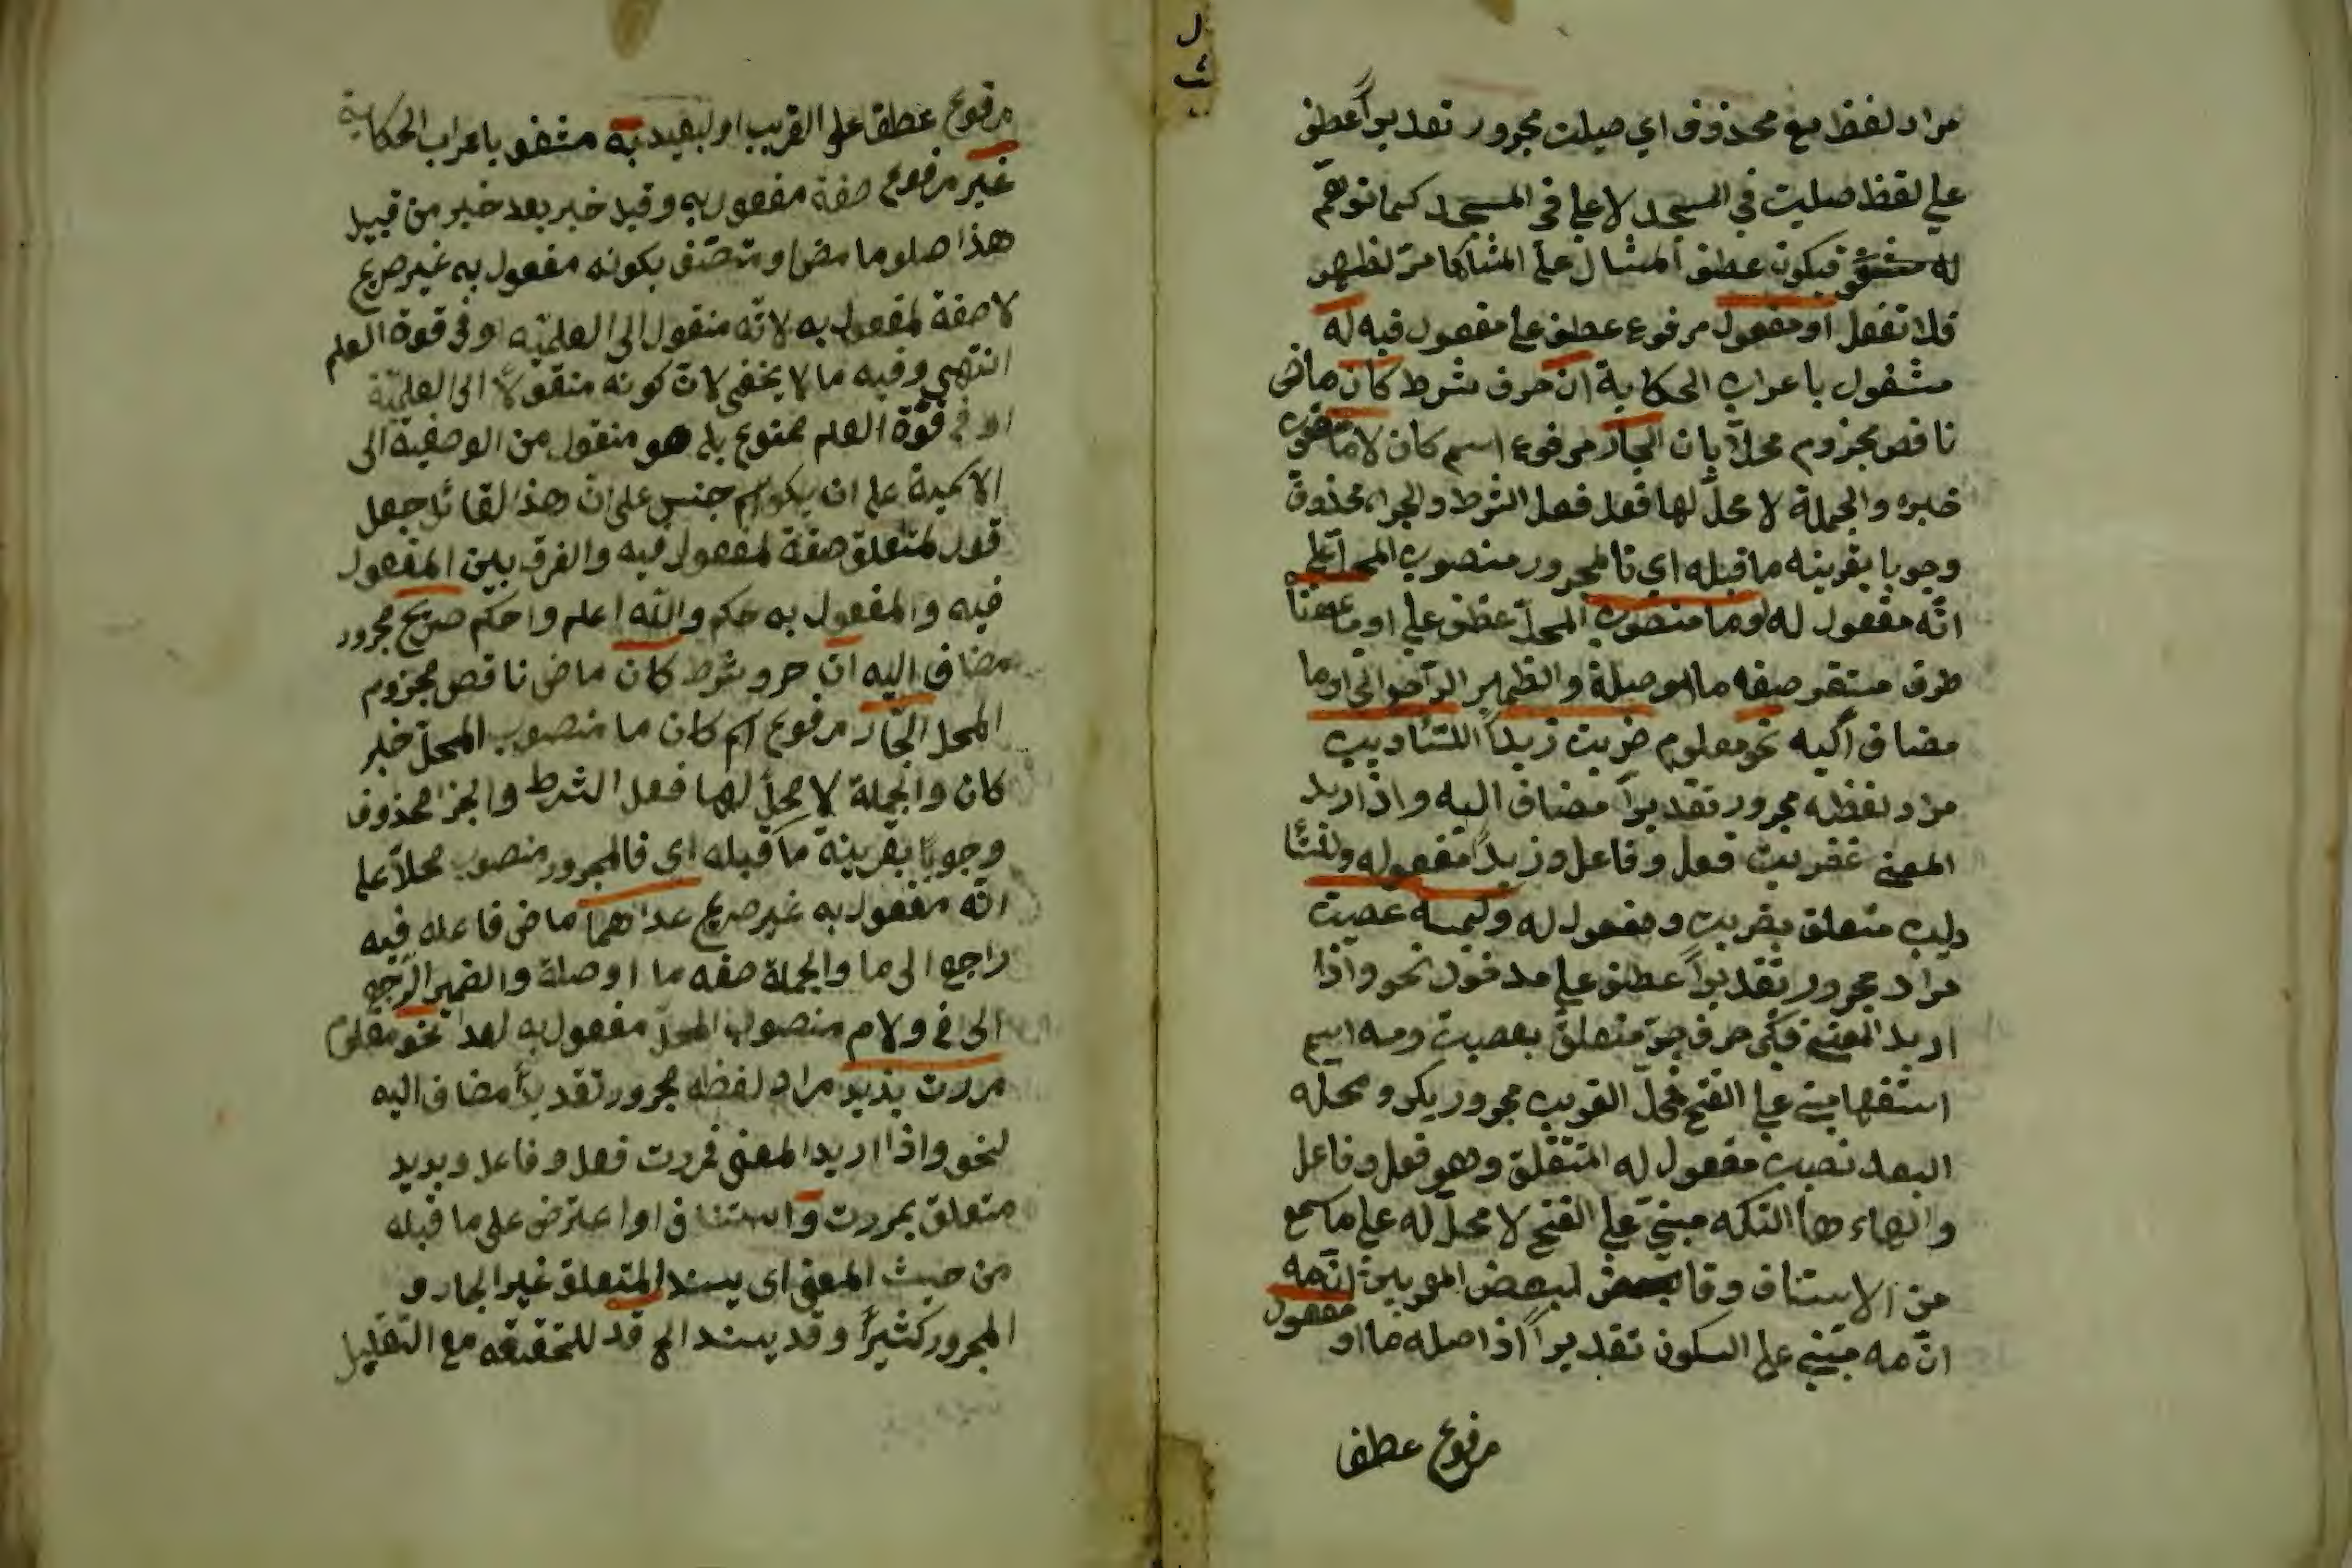 مراد لفظ مع محذوف اي صيلت مجرور تقديراً عطف
علي لفظ صليت في المسجد لا علي في المسجد كما توهّم
فيكون عطف المثال علي المثال كما مرّ نظيره
فلا تغفل او مفعول مرفوع عطف علي مفعول فيه له
مشغول باعراب الحكاية ان حرف شرط كان ماض
ناقص مجزوم محلاً بان الجار مرفوع اسم كان لاما منصوب
خبره والجملة لا محلّ لها فعل فعل الشرط والجزاء محذوف
وجوبا بقرينه ما قبله اي فالمجرور منصوب المحل علي
انّه مفعول له وما منصوب المحلّ عطف علي او بمعنا
ظرف مستقر صفه ما او صلة والظمير الراجع الي او ما
مضاف اليه نحو معلوم ضربت زيداً للتئاديب
مراد لفظه مجرور تقديراً مضاف اليه واذا اريد
المعني فضربت فعل وفاعل وزيداً مفعوله وللتئا
ديب متعلق بضربت ومفعول له وكيمه عصيت
مراد مجرور تقديراً عطف علي مدخول نحو واذا
اريد المعني فكي حرف جرّ متعلق بعصيت ومه اسم
استفها مبني علي الفتح فمحلّ القريب مجرور بكي ومحله
البعد نصب مفعول له المتعلق وهو فعل وفاعل
والهاء هاأ السكته مبنيّ علي الفتح لا محلّ له علي ما سمع
من الاستاذ وقا لبعض المعربين انّ مه
انّ مه مبني علي السكون تقديراً اذ اصله ما او مفعول
مرفوع عطفا
مرفوع عطفا علي القريب او لبعيد به مشغو باعراب الحكاية
غير مرفوع صفة مفعول به وقيل خبر بعد خبر من قبيل
هذا حلو حامض او متصف بكونه مفعول به غير صريح
لا صفة لمفعول به لانّه منقول الى العلميّه او في قوة العلم
انتهي وفيه ما لا يخفي لانّ كونه منقولاً الى العلميّة
او في قوّة العلم ممنوع بل هو منقول من الوصفية الى
الاسمية علي ان يكو اسم جنس على انّ هذا لقائل جعل
قول لمتعلق صفة لمفعول فيه والفرق بين المفعول
فيه والمفعول به حكم والله اعلم واحكم صريح مجرور
مضاف اليه ان حرو شرط كان ماض ناقص مجزوم
المحل الجّار مرفوع اسم كان ما منصوب المحلّ خبر
كان والجملة لا محلّ لها فعل الشرط والجزا محذوف
وجوباً بقرينة ما قبله اى فالمجرور منصوب محلاّ علي
انّه مفعول به غير صريح عداهما ماض فاعله فيه
راجع الى ما والجملة صفه ما او صلة والضمير الرّجع
الى في ولام منصوب المحلّ مفعول به لعدا نحو معلوم
مررت بذيد مراد لفظه مجرور تقديراً مضاف اليه
لنحو واذا اريد المعنى فمررت فعل وفاعل وبديد
متعلق بمررت و استئناف او اعترض على ما قبله
من حيث المعنى اى يسند المتعلق غير الجار و
المجرور كثيراً وقد يسند الخ قد للتحقيقه مع التقليل